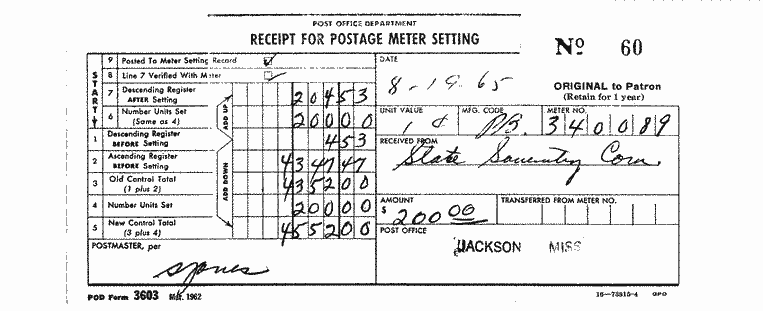 POST OFFICE DEPARTMENT
RECEIPT FOR POSTAGE METER SETTING
Nº 60
ORIGINAL to Patron
(Retain for 1 year)
START
9 Posted To Meter Setting Record
8 Line 7 Verified With Meter
7 Descending Register AFTER Setting 20453
6 Number Units Set (Same as 4) 20000
ADD UP
1 Descending Register BEFORE Setting 453
2 Ascending Register BEFORE Setting 434747
3 Old Control Total (1 plus 2) 435200
ADD DOWN
4 Number Units Set 20000
5 New Control Total (3 plus 4) 455200
POSTMASTER, per
DATE
8-19-65
UNIT VALUE 1 ¢
MFG. CODE PB.
METER NO. 340089
RECEIVED FROM
State Com.
AMOUNT
$ 200 00
TRANSFERRED FROM METER NO.
POST OFFICE
JACKSON MISS
POD Form 3603 Mar. 1962
16—73815-4 GPO